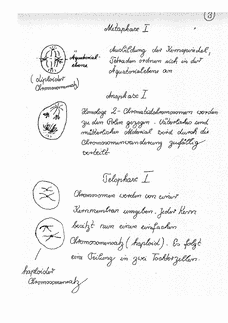 3
Metaphase I
Äquatorial-
ebene
(diploider
Chromosomensatz)
Ausbildung der Kernspindel,
Tetraden ordnen sich in der
Äquatorialebene an
Anaphase I
Homologe 2-Chromatidchromosomen werden
zu den Polen gezogen. Väterliches und
mütterliches Material wird durch die
Chromosomenwanderung zufällig
verteilt
Telophase I
Chromosomen werden von einer
Kernmembran umgeben. Jeder Kern
besitzt nun einen einfachen
Chromosomensatz (haploid). Es folgt
eine Teilung in zwei Tochterzellen.
haploider
Chromosomensatz